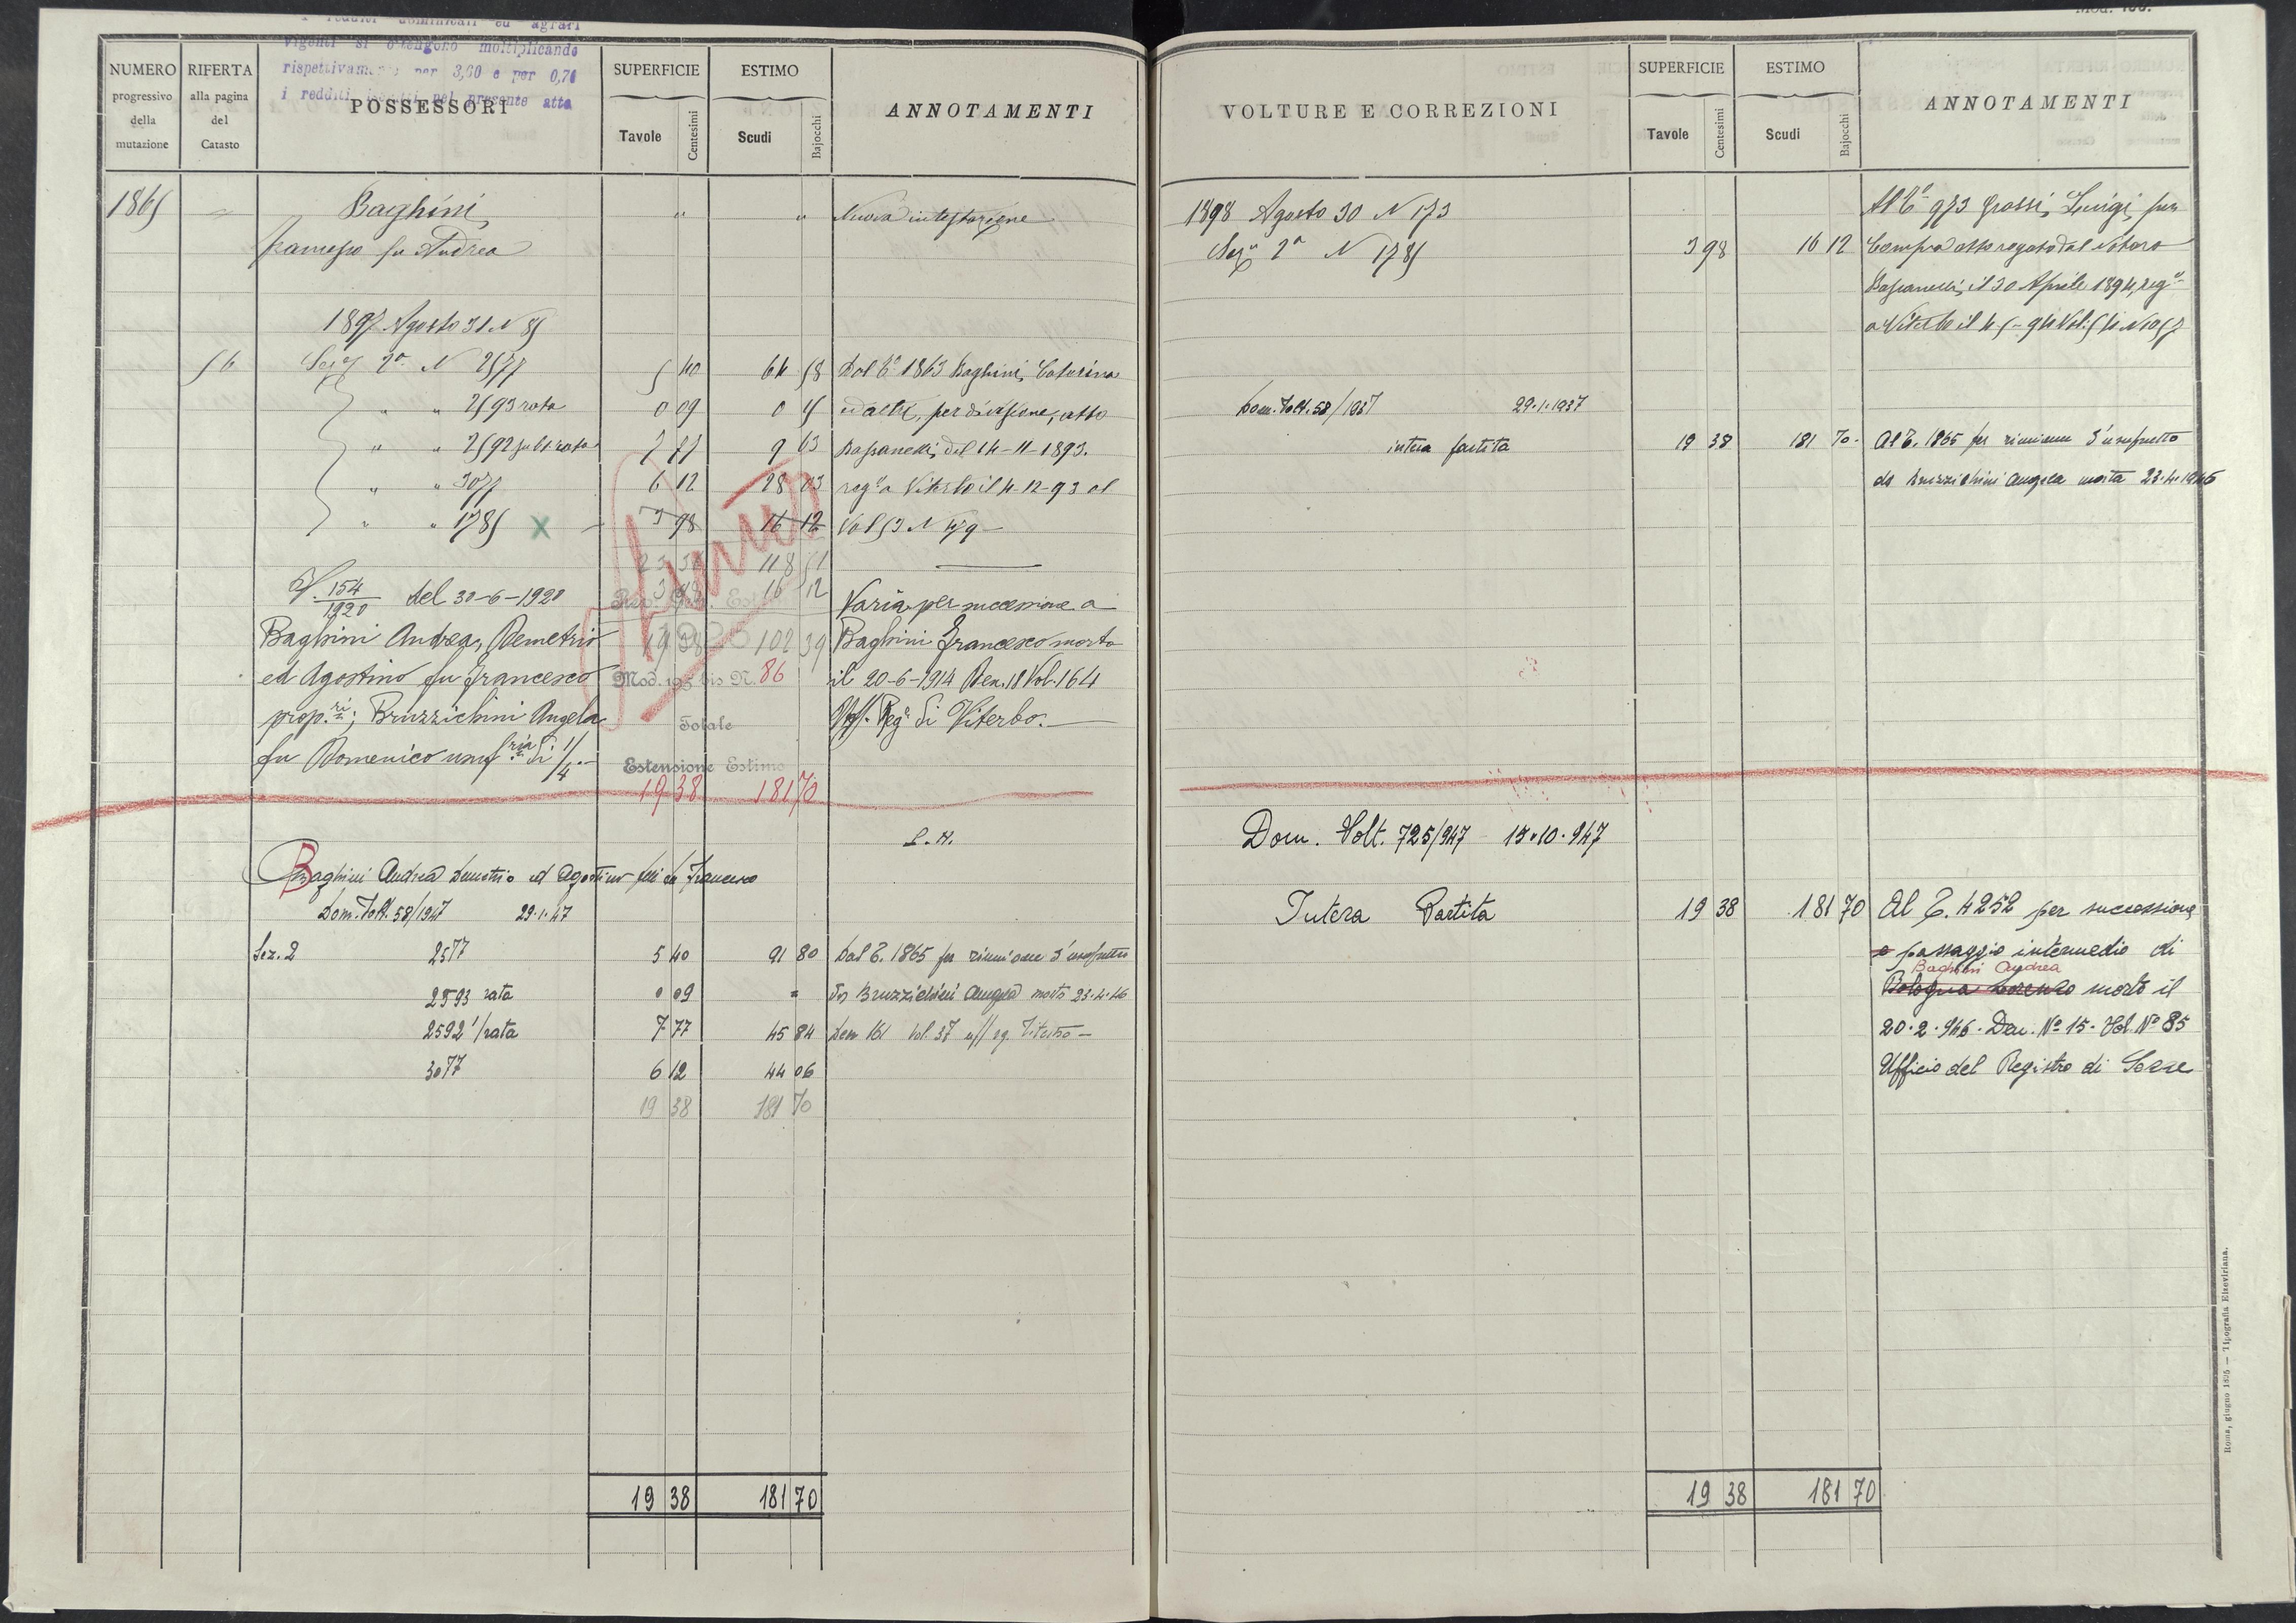 i redditi dominicali ed agrari
vigenti si ottengono moltiplicando
rispettivamente per 3,60 e per 0,70
i redditi iscritti nel presente atto
NUMERO progressivo della mutazione
RIFERTA alla pagina del Catasto
POSSESSORI
SUPERFICIE
Tavole Centesimi
ESTIMO
Scudi Bajocchi
ANNOTAMENTI
1865 Baghini " " Nuova intestazione
Francesco fu Andrea
1897 Agosto 31 N 85
56 Sezne 2a N 2577 5 40 64 58 Dal Ta 1863 Baghini Caterina
" " 2593 rata 0 09 0 15 ed altri, per divisione, atto
" " 2592 sub 1 rata 7 77 9 63 Bassanelli, del 14-11-1893.
" " 3077 6 12 28 03 rego a Viterbo il 4-12-93 al
" " 1785 x 3 98 16 12 Vol 53 N 479
23 36 118 51
3 98 16 12
V. 154/1920 del 30-6-1920 Varia per successione a
Baghini Andrea, Demetrio 19 38 102 39 Baghini Francesco morto
ed Agostino fu Francesco Mod. 195 bis N. 86 il 20-6-1914 Den. 18 Vol. 164
prop.ri; Bruzzichini Angela Totale Uff. Rego di Viterbo.
fu Domenico usuf.ria di 1/4.
Estensione Estimo
19 38 181 70
L.N.
Baghini Andrea Demetrio ed Agostino fu Francesco
Dom. Volt. 58/1947 29.1.47
Sez. 2 2577 5 40 91 80 Dal T. 1865 per riunione d'usufrutto
2593 rata 0 09 = da Bruzzichini Angela morta 23.4.46
2592 1/rata 7 77 45 84 Den 161 Vol. 37 uff reg. Viterbo -
3077 6 12 44 06
19 38 181 70
19 38 181 70
Mod. 100.
VOLTURE E CORREZIONI
SUPERFICIE
Tavole Centesimi
ESTIMO
Scudi Bajocchi
ANNOTAMENTI
1898 Agosto 30 N 173 Al Ta 973 Grossi, Luigi, per
Sezne 2a N 1785 3 98 16 12 Compra atto rogato dal Notaro
Bassanelli, il 30 Aprile 1894, rego
a Viterbo il 4-5-94 Vol: 54 N 1057
Dom. Volt. 58/1937 29.1.1937
intera partita 19 38 181 70 Al T. 1865 per riunione d'usufrutto
da Bruzzichini Angela morta 23.4.1946
Dom. Volt. 725/947 15.10.947
Intera Partita 19 38 181 70 Al T. 4252 per successione
e passaggio intermedio di
Baghini Andrea
Bologna Lorenzo morto il
20.2.946. Den. No 15. Vol. No 85
Ufficio del Registro di
19 38 181 70
Roma, giugno 1895 — Tipografia Elzeviriana.